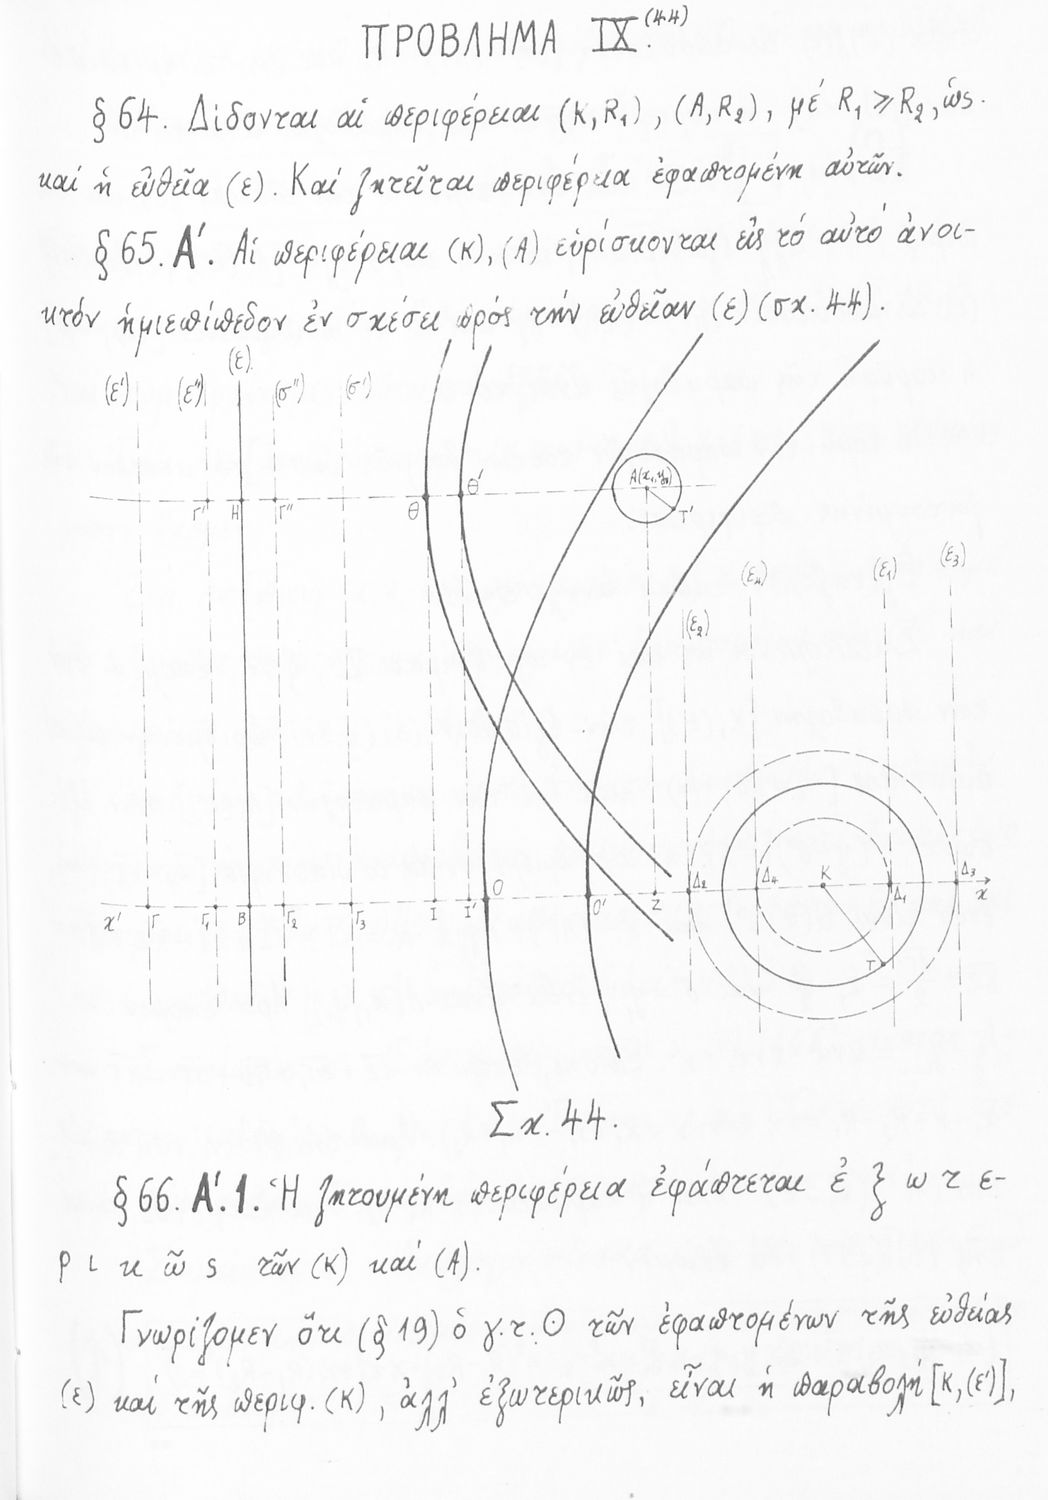 ΠΡΟΒΛΗΜΑ ΙΧ.(44)
§ 64. Δίδονται αἱ περιφέρειαι (K,R₁), (A,R₂), μέ R₁ ≥ R₂, ὡς
καί ἡ εὐθεῖα (ε). Καί ζητεῖται περιφέρεια ἐφαπτομένη αὐτῶν.
§ 65. Α'. Αἱ περιφέρειαι (K), (A) εὑρίσκονται εἰς τό αὐτό ἀνοι-
κτόν ἡμιεπίπεδον ἐν σχέσει πρός τήν εὐθεῖαν (ε) (σχ. 44).
(ε)
(ε') (ε'') (σ'') (σ')
Γ' Η Γ'' Θ Θ' A(x₁,y₁) T'
(ε₂) (ε₄) (ε₁) (ε₃)
x' Γ Γ₁ B Γ₂ Γ₃ I I' O O' Z Δ₂ Δ₄ K Δ₁ Δ₃ x
T
Σχ. 44.
§ 66. Α'.1. Ἡ ζητουμένη περιφέρεια ἐφάπτεται ἐ ξ ω τ ε-
ρ ι κ ῶ ς τῶν (K) καί (A).
Γνωρίζομεν ὅτι (§ 19) ὁ γ.τ. Θ τῶν ἐφαπτομένων τῆς εὐθείας
(ε) καί τῆς περιφ. (K), ἀλλ' ἐξωτερικῶς, εἶναι ἡ παραβολή [K,(ε')],